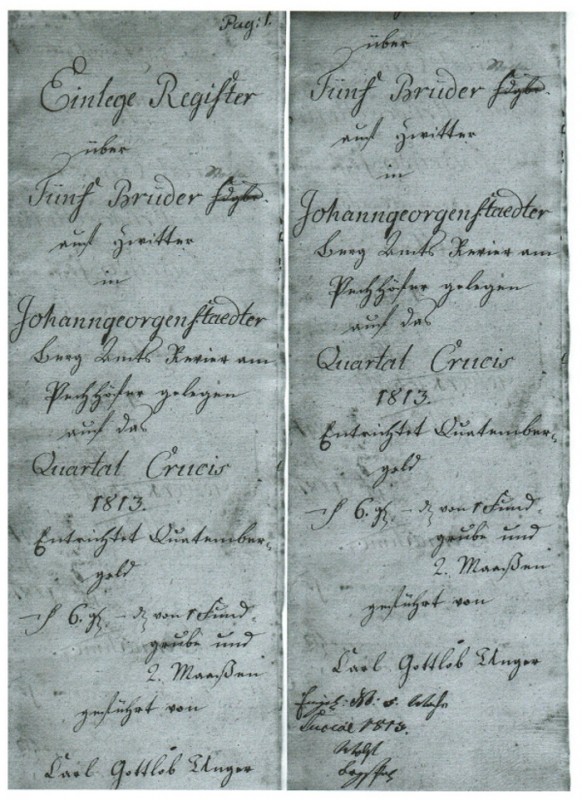 Pag: 1.
Einlege Register
über
Fünf Brüder Fdgbe.
auf Zwitter
in
Johanngeorgenstaedter
Berg Amts Revier am
Pechhöfer gelegen
auf das
Quartal Crucis
1813.
Entrichtet Quatember-
geld
6. gl. von 1 Fund-
grube und
2. Maaßen
geführt von
Carl Gottlob Unger
über
Fünf Brüder Fdgbe.
auf Zwitter
in
Johanngeorgenstaedter
Berg Amts Revier am
Pechhöfer gelegen
auf das
Quartal Crucis
1813.
Entrichtet Quatember-
geld
6. gl. von 1 Fund-
grube und
2. Maaßen
geführt von
Carl Gottlob Unger
Luciae 1813.